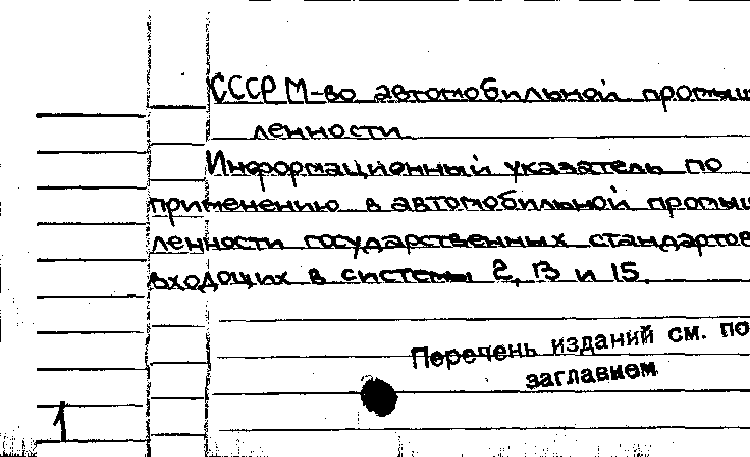 СССР М-во автомобильной промыш
ленности
Информационный указатель по
применению в автомобильной промыш
ленности государственных стандартов
входящих в системы 2, 13 и 15.
Перечень изданий см. по
заглавием
1